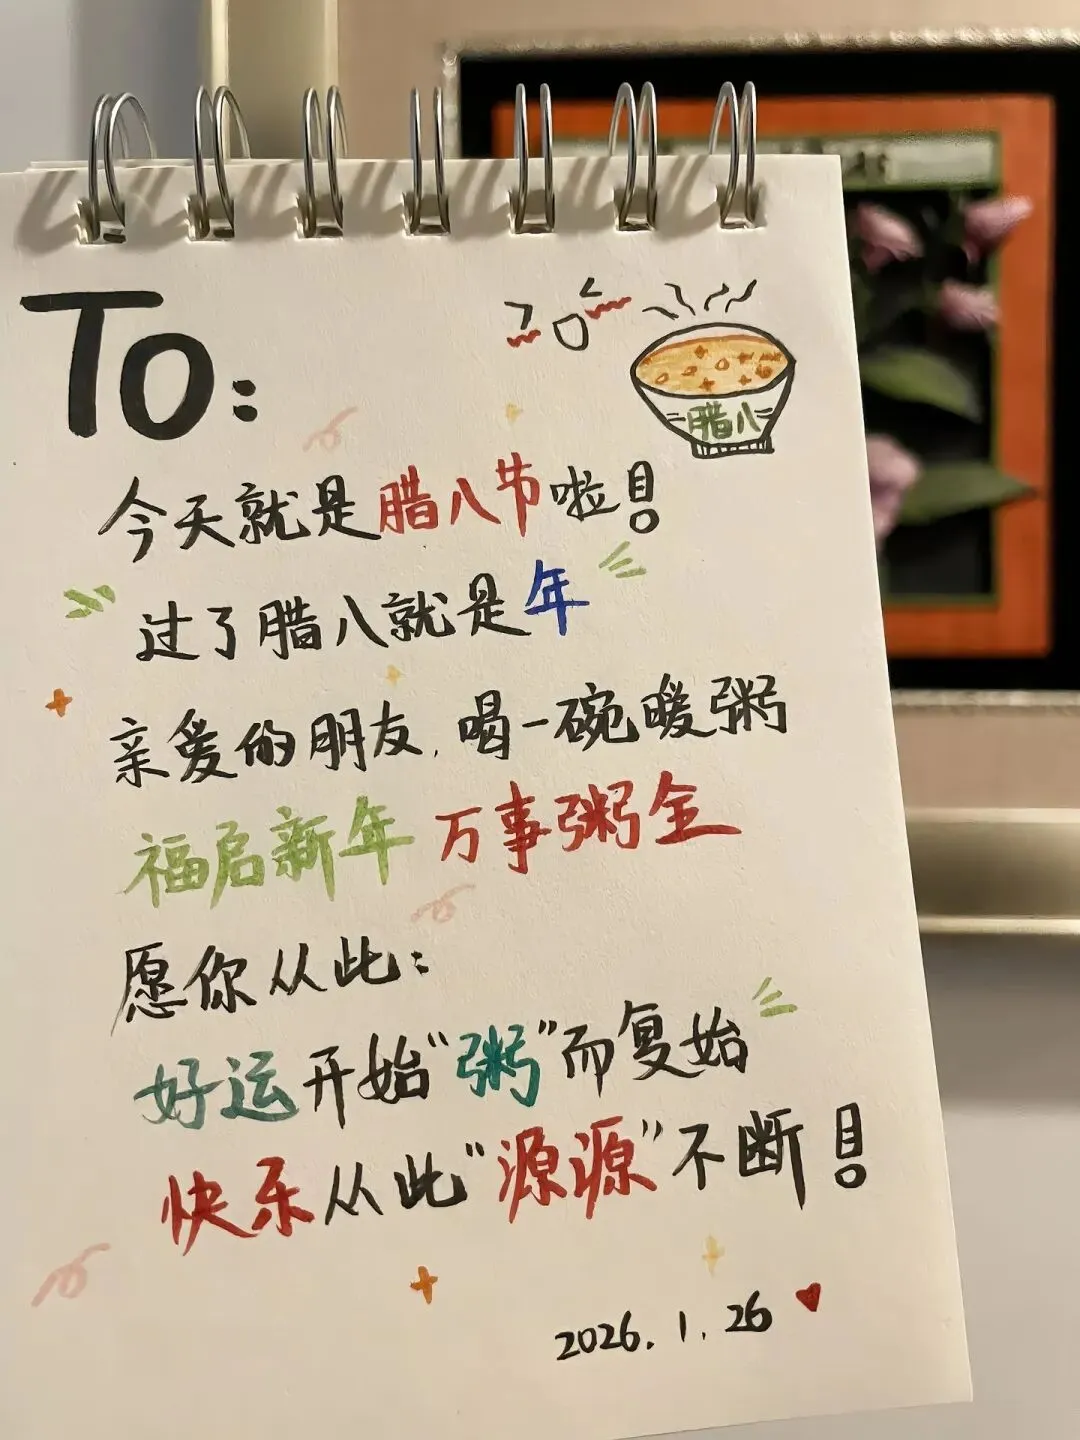 To:
腊八
今天就是腊八节啦!
过了腊八就是年
亲爱的朋友,喝一碗暖粥
福启新年 万事粥全
愿你从此:
好运开始“粥”而复始
快乐从此“源源”不断!
2026.1.26